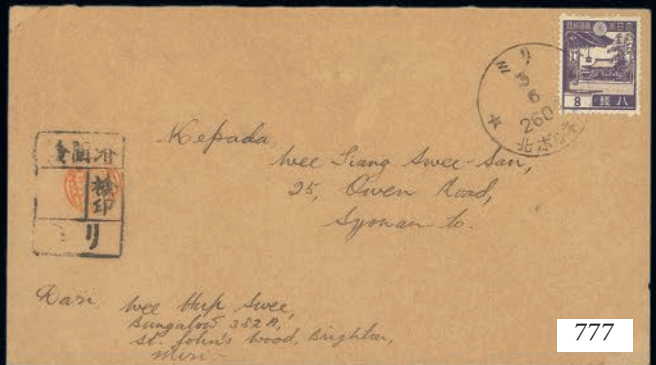 8 錢 八
ミリ
5 6
2603
北ボルネオ
Kepada
Wee Siang Swee-San,
25, Owen Road,
Syonan-to.
検印
リ
Dari Wee Hup Swee,
Bungalow 352A,
St. John's Wood, Brighton,
Miri -
777